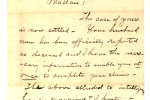 Madam:
The case of yours
is now settled - You husband
now has been officially reported
as deceased and I have the nec-
essary information to enable you at
once to complete your claim -
The above alluded to